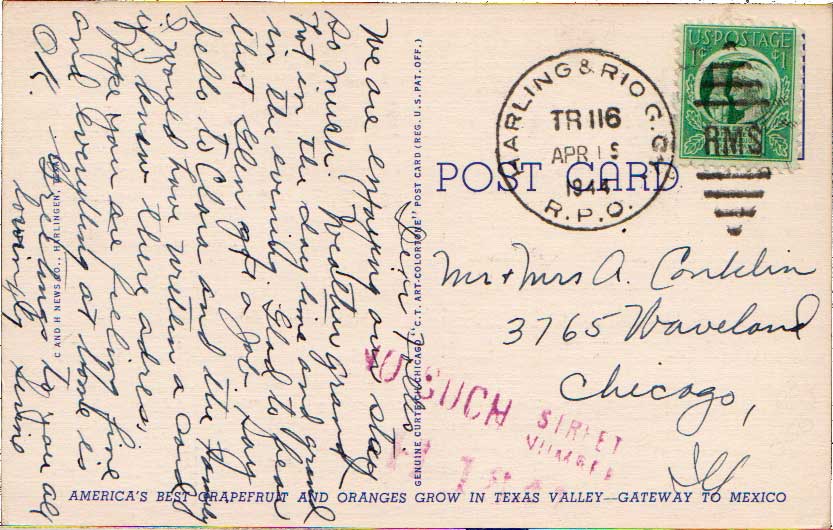 Dear Folks
We are enjoying our stay
so much. Weather grand.
hot in the day time and grand
in the evening. Glad to hear
that Glen got a job. Say
hello to Clara and the family
I would have written a card
if I knew there adres,
Hope you are feeling fine
and everything at home is
OK.
Greetings to you all
lovingly
C AND H NEWS CO., HARLINGEN, TEXAS
GENUINE CURTEICH-CHICAGO "C.T. ART-COLORTONE" POST CARD (REG. U.S. PAT. OFF.)
POST CARD
HARLING & RIO G. CY
TR 116
APR
1944
R.P.O.
U.S. POSTAGE
1¢ ¢1
RMS
Mr + Mrs A. Conklin
3765 Waveland
Chicago,
Ill
NO SUCH STREET
NUMBER
AMERICA'S BEST GRAPEFRUIT AND ORANGES GROW IN TEXAS VALLEY—GATEWAY TO MEXICO